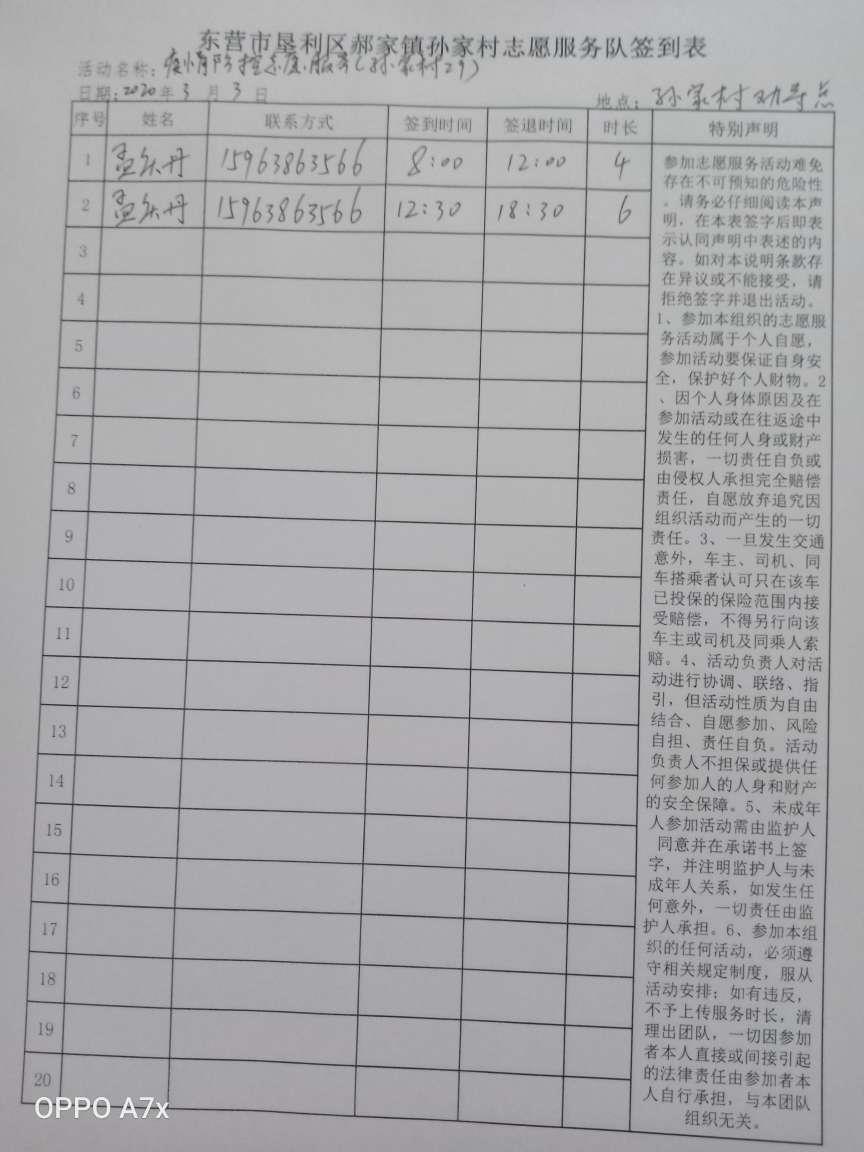 东营市垦利区郝家镇孙家村志愿服务队签到表
活动名称：疫情防控志愿服务（孙家村29）
日期：2020年3月3日
地点：孙家村劝导点
序号 姓名 联系方式 签到时间 签退时间 时长 特别声明
1 孟 丹 15963863566 8:00 12:00 4
2 孟 丹 15963863566 12:30 18:30 6
3
4
5
6
7
8
9
10
11
12
13
14
15
16
17
18
19
20
参加志愿服务活动难免
存在不可预知的危险性
。请务必仔细阅读本声
明，在本表签字后即表
示认同声明中表述的内
容。如对本说明条款存
在异议或不能接受，请
拒绝签字并退出活动。
1、参加本组织的志愿服
务活动属于个人自愿，
参加活动要保证自身安
全，保护好个人财物。2
、因个人身体原因及在
参加活动或在往返途中
发生的任何人身或财产
损害，一切责任自负或
由侵权人承担完全赔偿
责任，自愿放弃追究因
组织活动而产生的一切
责任。3、一旦发生交通
意外，车主、司机、同
车搭乘者认可只在该车
已投保的保险范围内接
受赔偿，不得另行向该
车主或司机及同乘人索
赔。4、活动负责人对活
动进行协调、联络、指
引，但活动性质为自由
结合、自愿参加、风险
自担、责任自负。活动
负责人不担保或提供任
何参加人的人身和财产
的安全保障。5、未成年
人参加活动需由监护人
同意并在承诺书上签
字，并注明监护人与未
成年人关系，如发生任
何意外，一切责任由监
护人承担。6、参加本组
织的任何活动，必须遵
守相关规定制度，服从
活动安排；如有违反，
不予上传服务时长，清
理出团队，一切因参加
者本人直接或间接引起
的法律责任由参加者本
人自行承担，与本团队
组织无关。
OPPO A7x